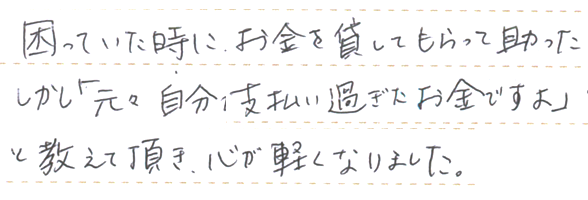 困っていた時に、お金を貸してもらって助かった
しかし「元々自分が支払い過ぎたお金ですよ」
と教えて頂き、心が軽くなりました。